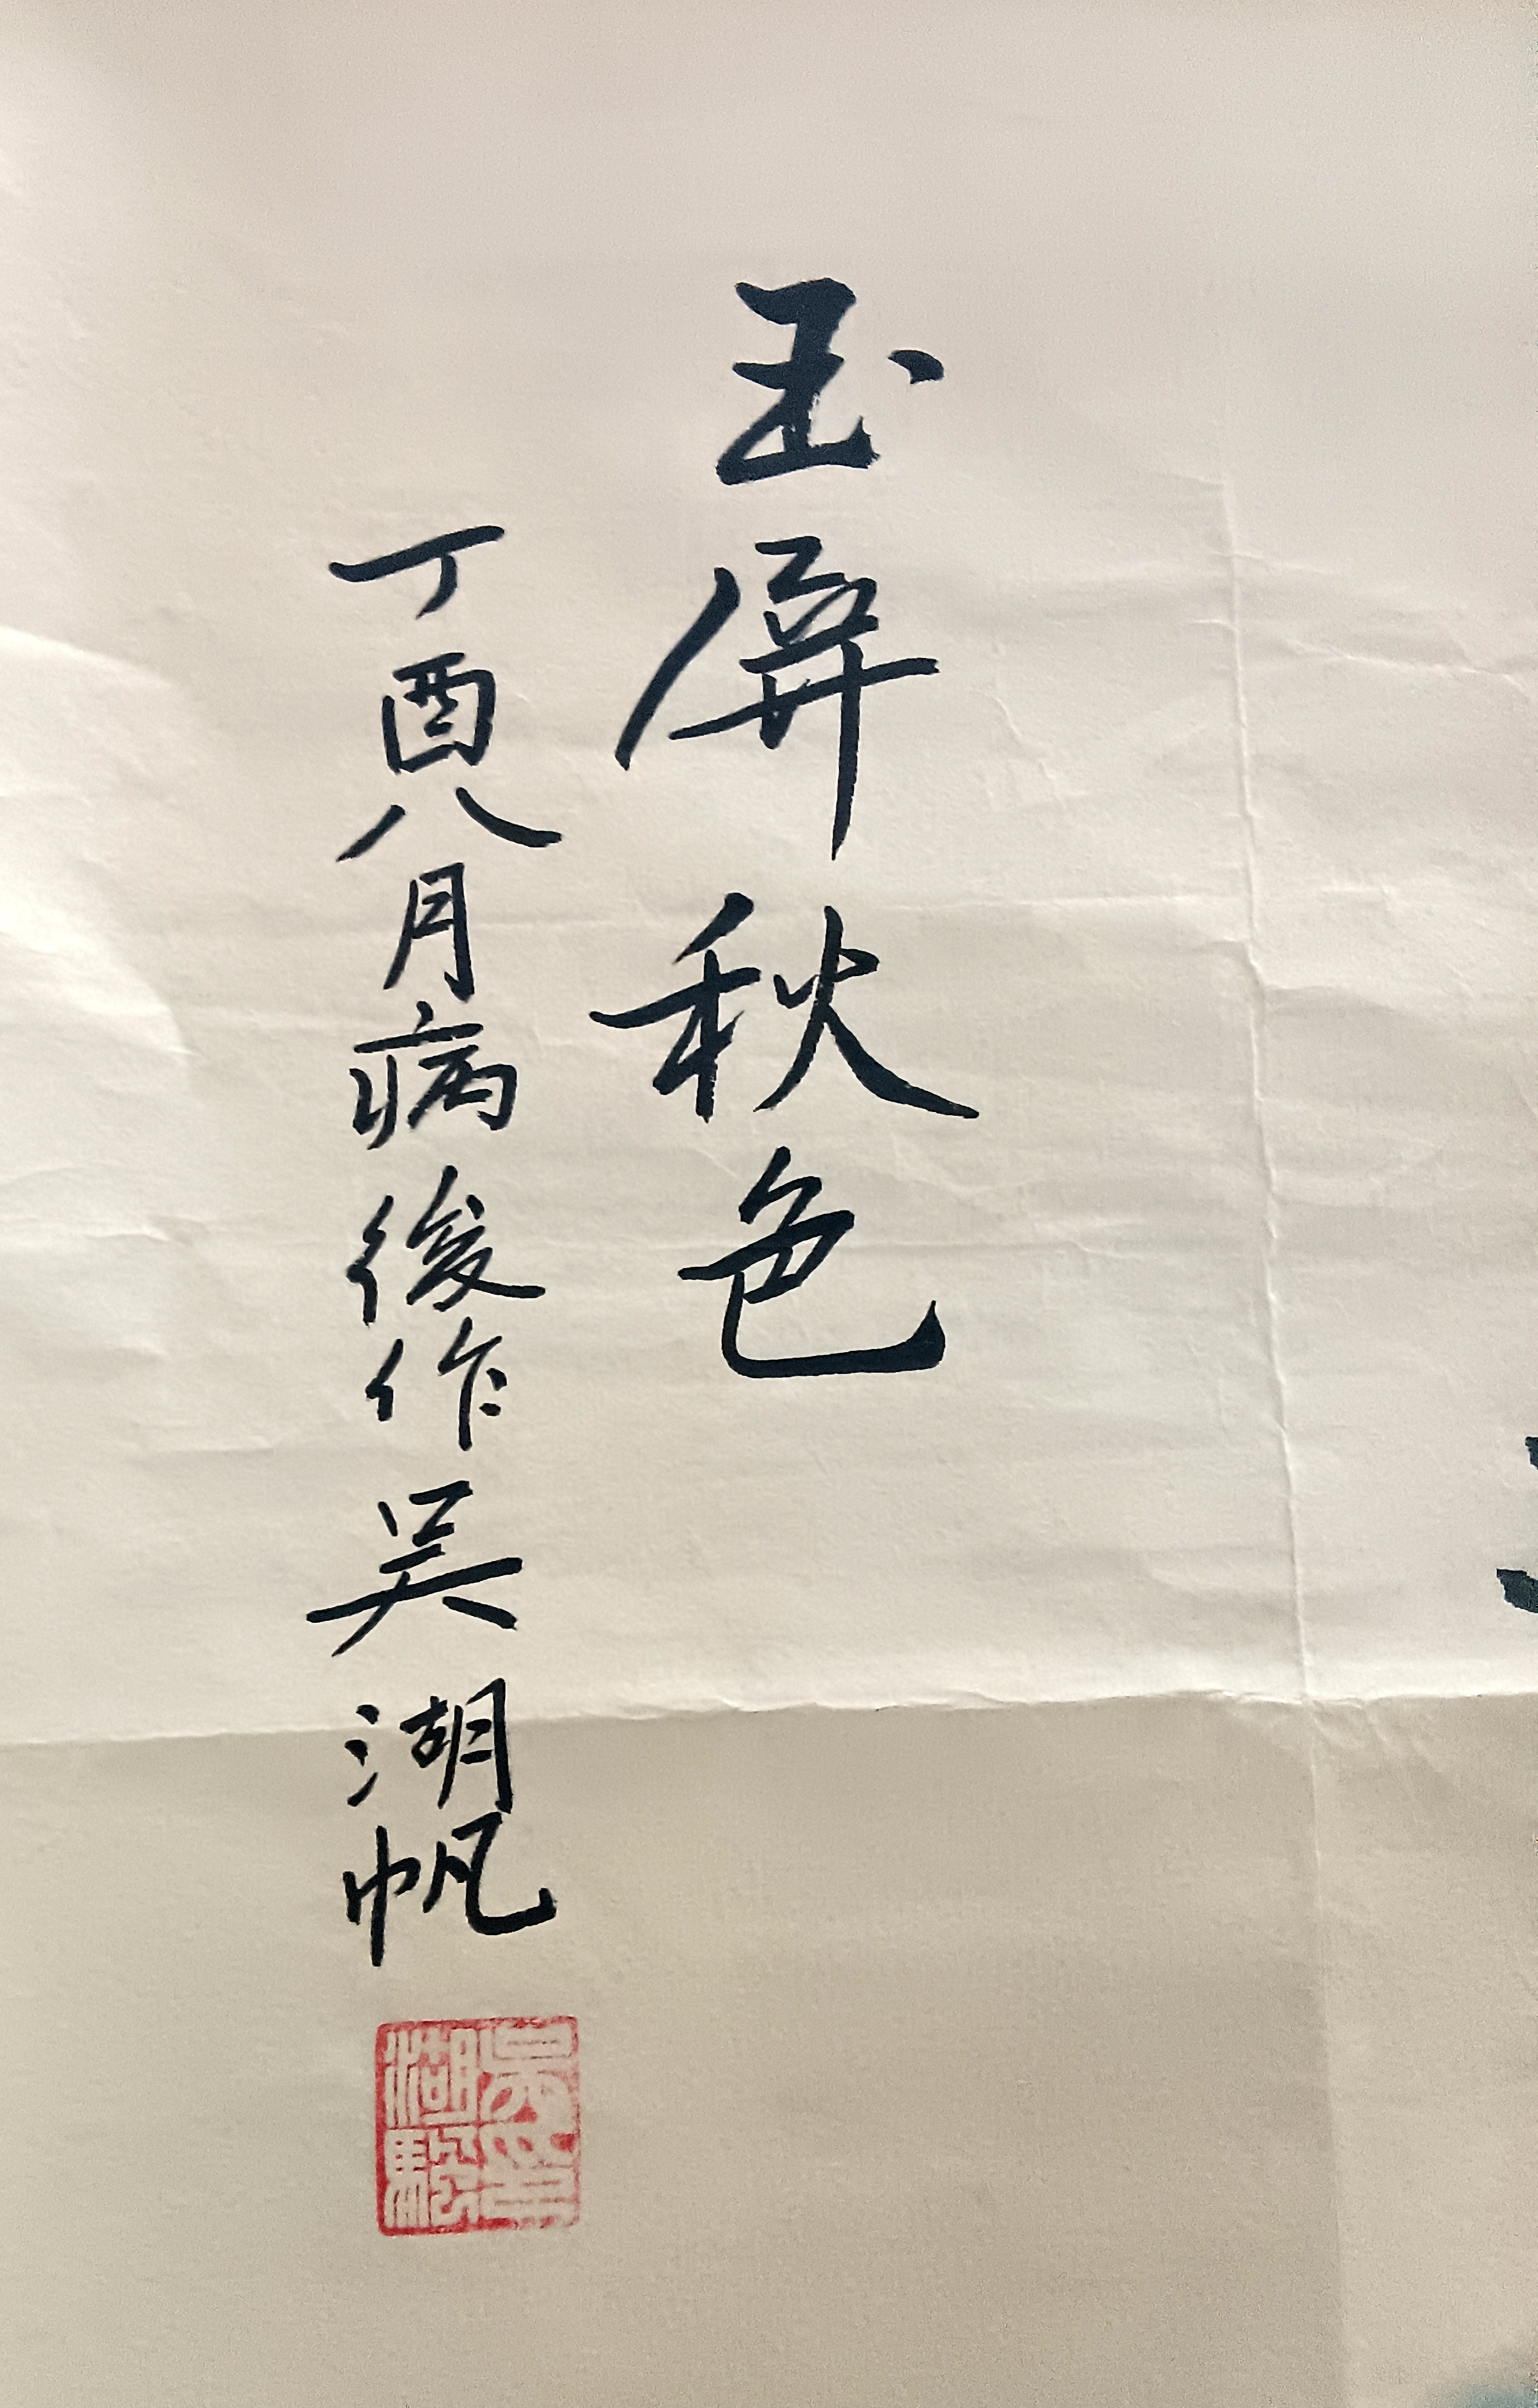 玉屏秋色
丁酉八月病後作吳湖帆
吳湖騪印